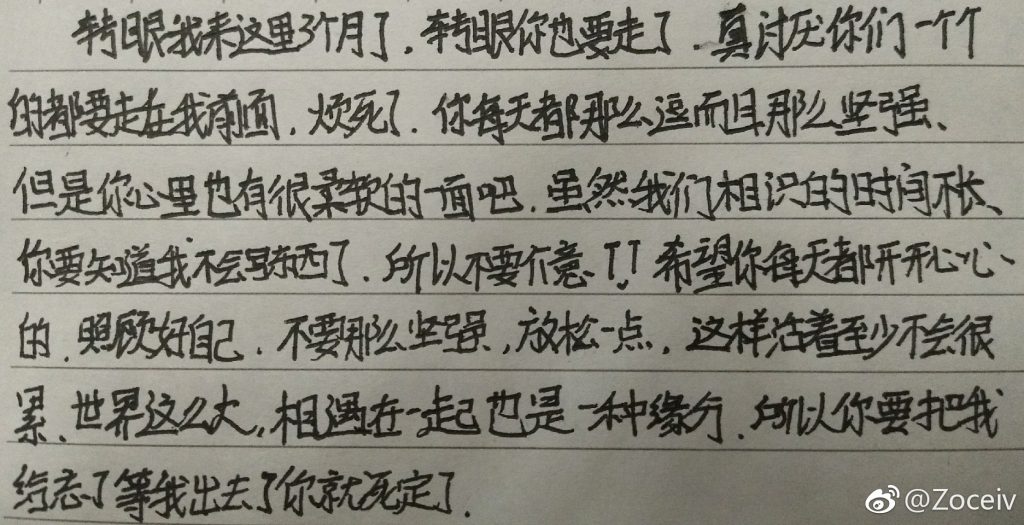 转眼我来这里3个月了.转眼你也要走了.真讨厌你们一个个
的都要走在我前面.烦死了.你每天都那么逗而且那么坚强、
但是你心里也有很柔软的一面吧.虽然我们相识的时间不长、
你要知道我不会写东西了.所以不要介意!!希望你每天都开开心心
的.照顾好自己.不要那么坚强,放松一点,这样活着至少不会很
累、世界这么大,相遇在一起也是一种缘分.所以你要把我
给忘了等我出去了你就死定了.
@Zoceiv